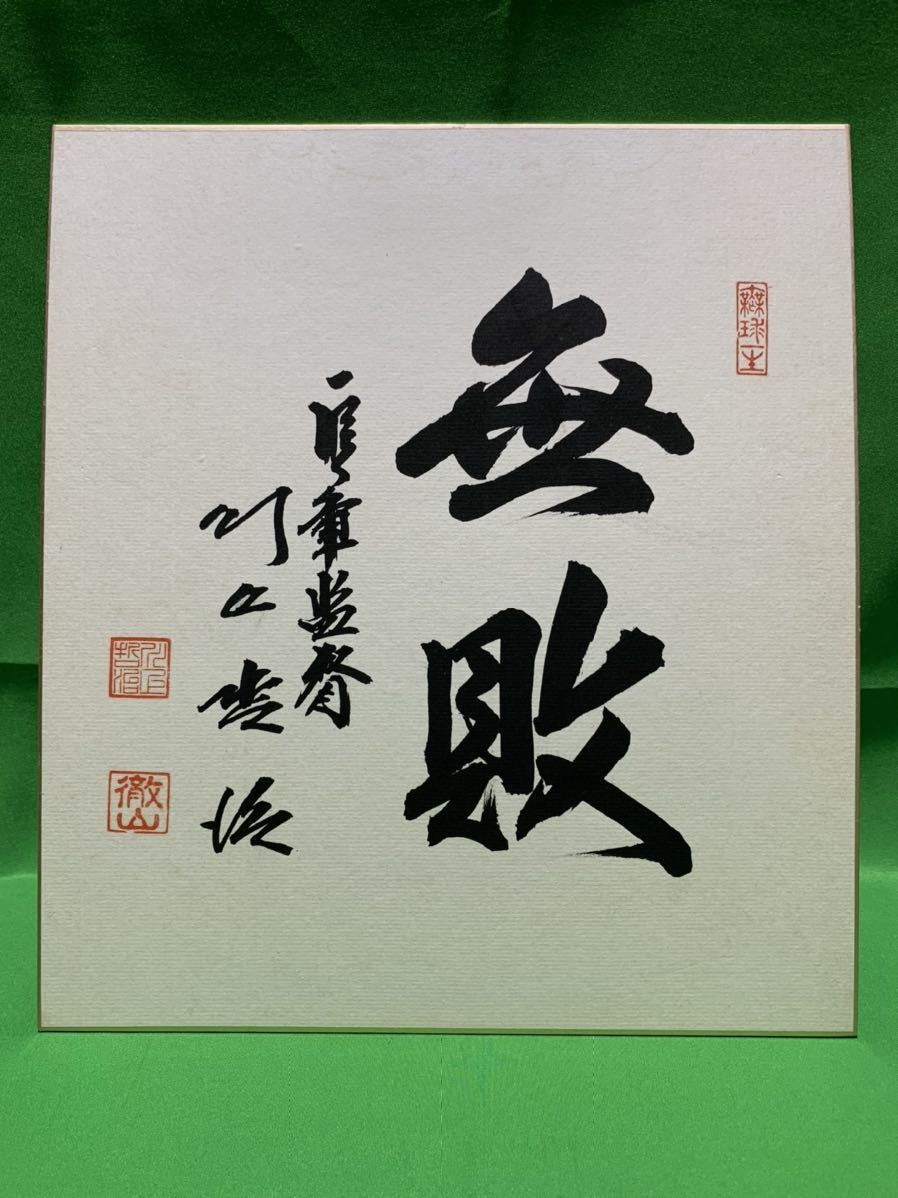 無敗
巨軍監督
川上哲治
川上哲治
徹山